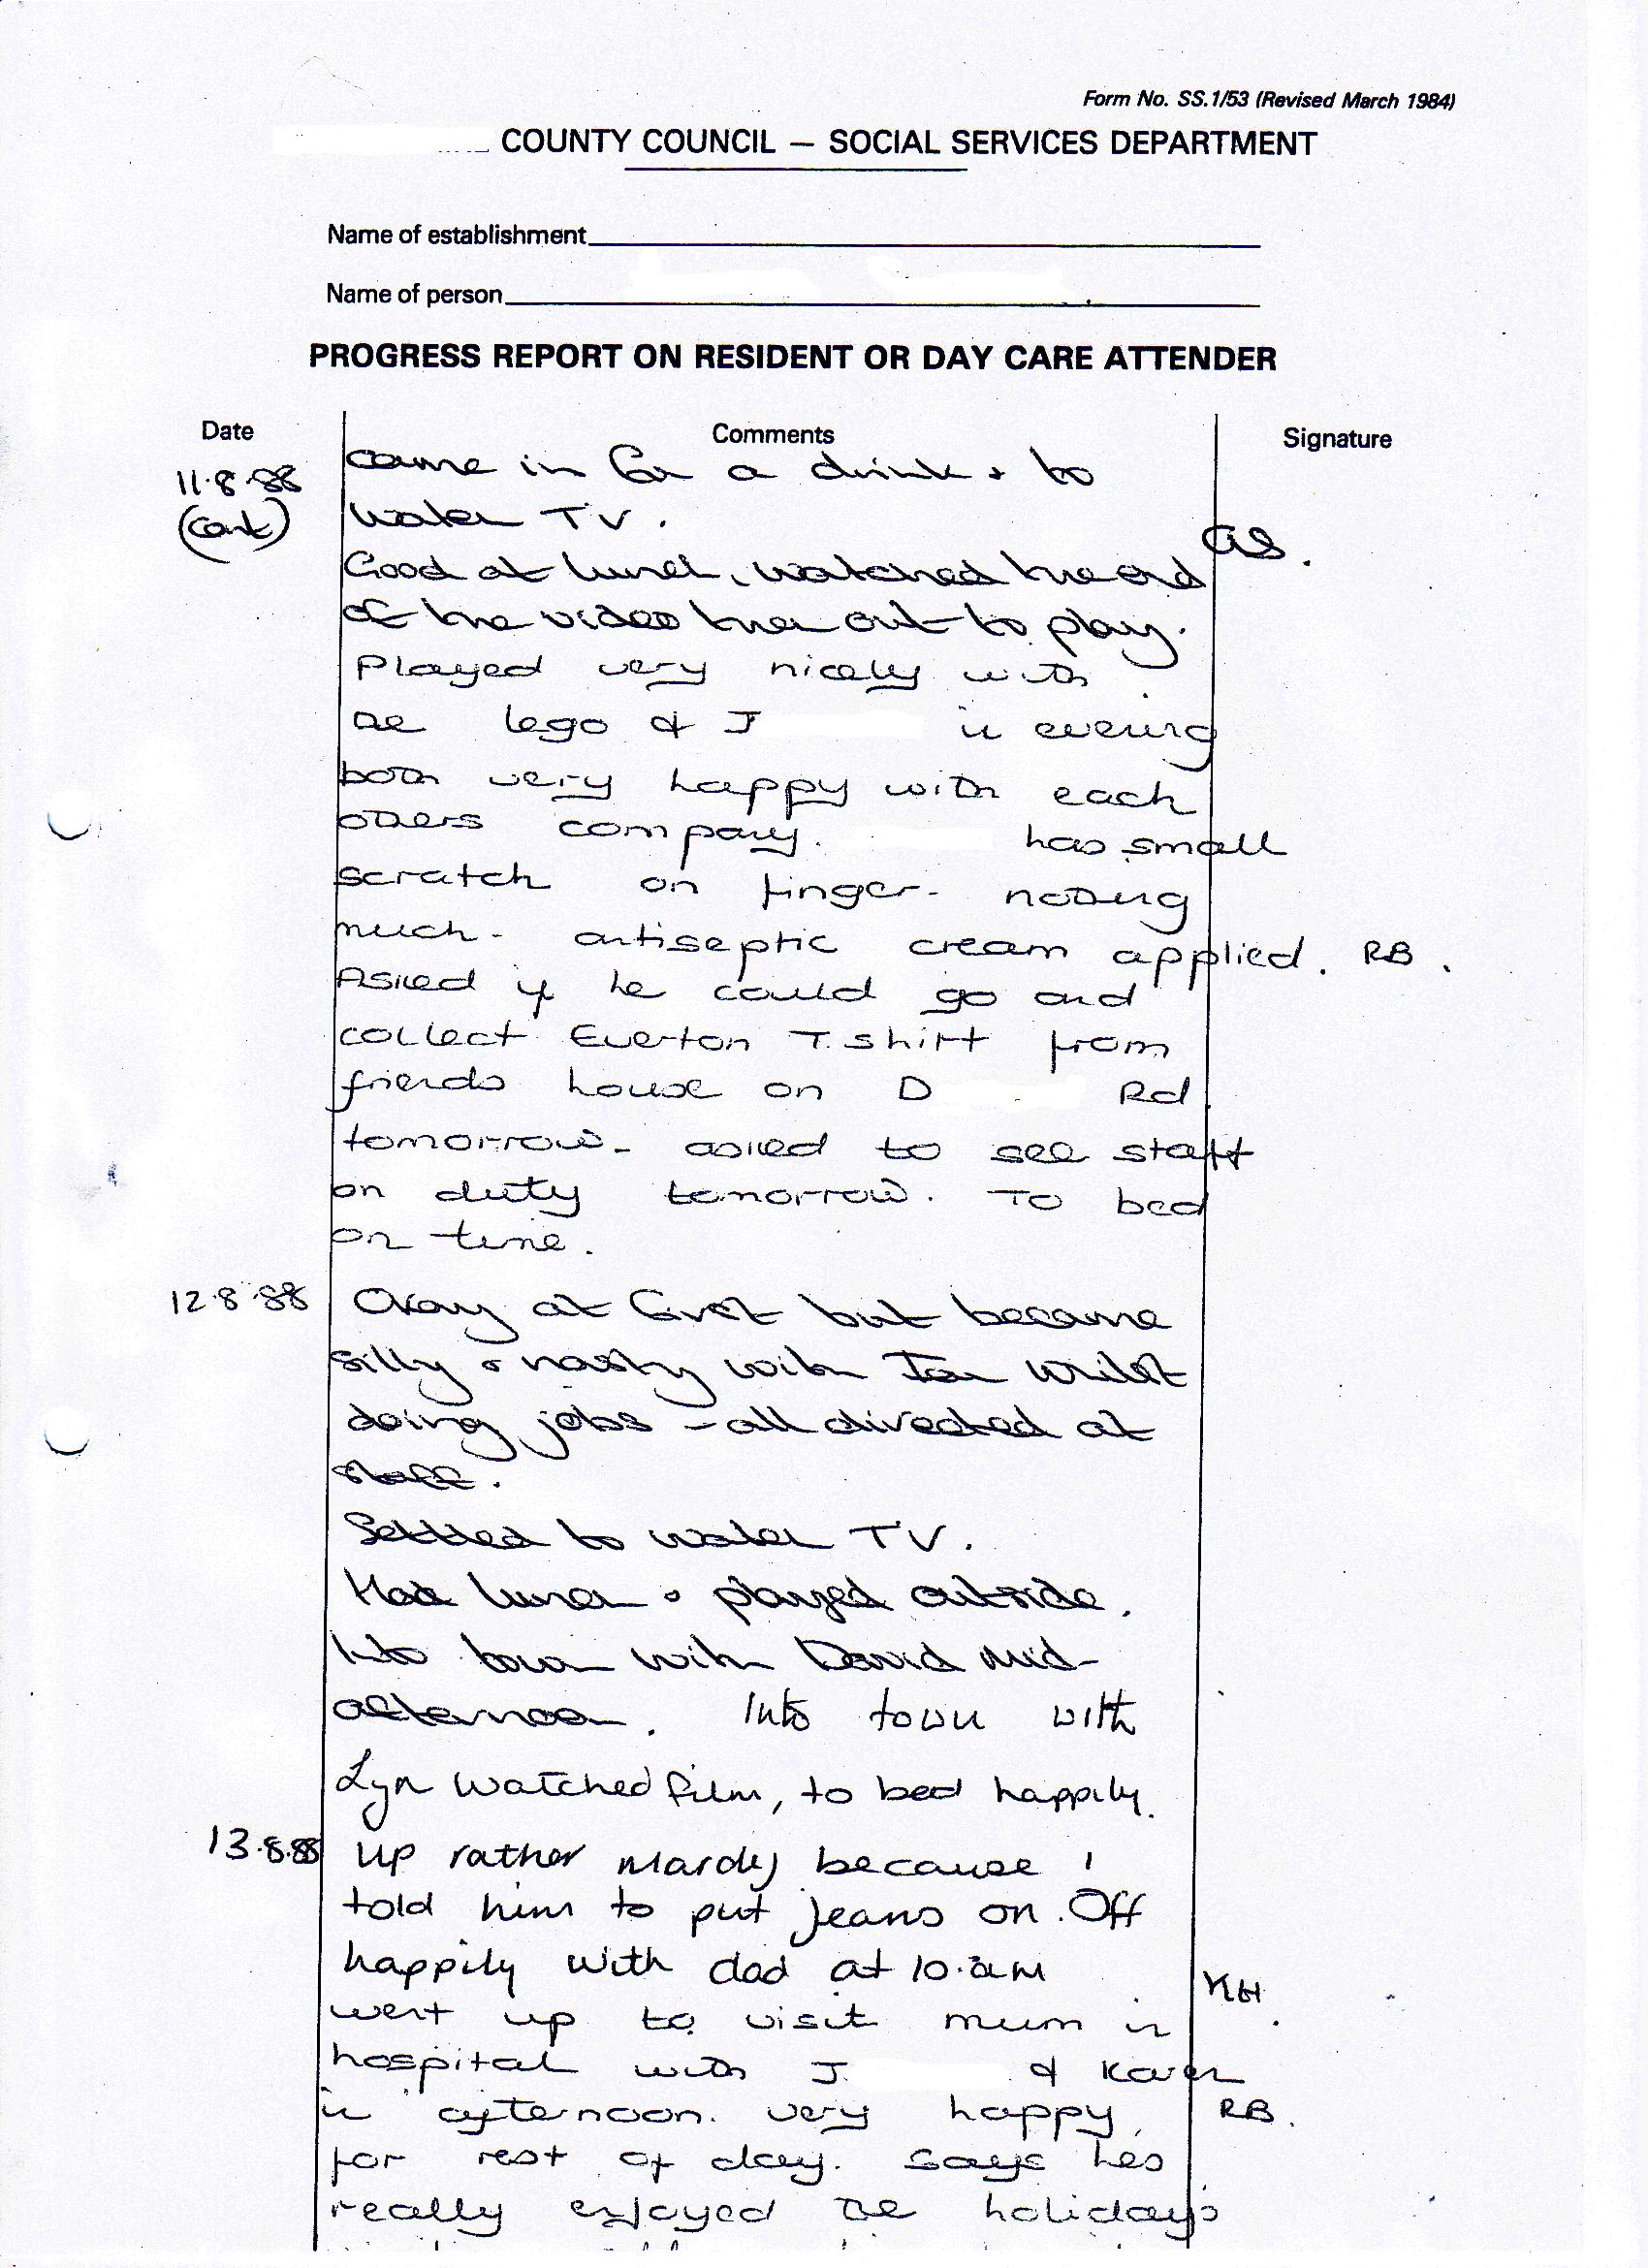 Form No. SS.1/53 (Revised March 1984)
COUNTY COUNCIL — SOCIAL SERVICES DEPARTMENT
Name of establishment
Name of person
PROGRESS REPORT ON RESIDENT OR DAY CARE ATTENDER
Date Comments Signature
11.8.88 came in for a drink + to
(Cont) watch TV.
GS.
Good at lunch, watched the end
of the video then out to play.
Played very nicely with
the lego & J in evening
both very happy with each
others company. has small
scratch on finger - nothing
much - antiseptic cream applied. RB.
Asked if he could go and
collect Everton T.shirt from
friends house on D Rd
tomorrow - asked to see staff
on duty tomorrow. To bed
on time.
12.8.88 Okay at first but became
silly & nasty with Ian whilst
doing jobs - all directed at
staff.
Settled to watch TV.
Had lunch & played outside.
Into town with David mid-
afternoon. Into town with
Lyn watched film, to bed happily.
13.8.88 Up rather mardy because I
told him to put jeans on. Off
happily with dad at 10.am
KH.
went up to visit mum in
hospital with J. & Karen
in afternoon. very happy RB.
for rest of day. Says hes
really enjoyed the holidays